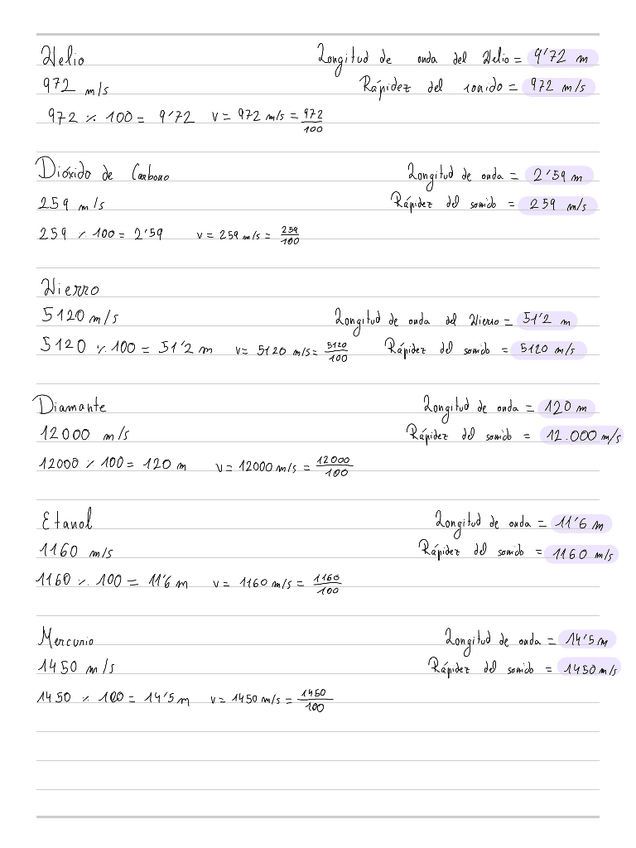 Helio Longitud de onda del Helio = 9'72 m
972 m/s Rápidez del sonido = 972 m/s
972 ٪ 100 = 9'72 v = 972 m/s = 972/100
Dióxido de Carbono Longitud de onda = 2'59 m
259 m/s Rápidez del sonido = 259 m/s
259 ٪ 100 = 2'59 v = 259 m/s = 259/100
Hierro
5120 m/s Longitud de onda del Hierro = 51'2 m
5120 ٪ 100 = 51'2 m v = 5120 m/s = 5120/100 Rápidez del sonido = 5120 m/s
Diamante Longitud de onda = 120 m
12000 m/s Rápidez del sonido = 12.000 m/s
12000 ٪ 100 = 120 m v = 12000 m/s = 12000/100
Etanol Longitud de onda = 11'6 m
1160 m/s Rápidez del sonido = 1160 m/s
1160 ٪ 100 = 11'6 m v = 1160 m/s = 1160/100
Mercurio Longitud de onda = 14'5 m
1450 m/s Rápidez del sonido = 1450 m/s
1450 ٪ 100 = 14'5 m v = 1450 m/s = 1450/100